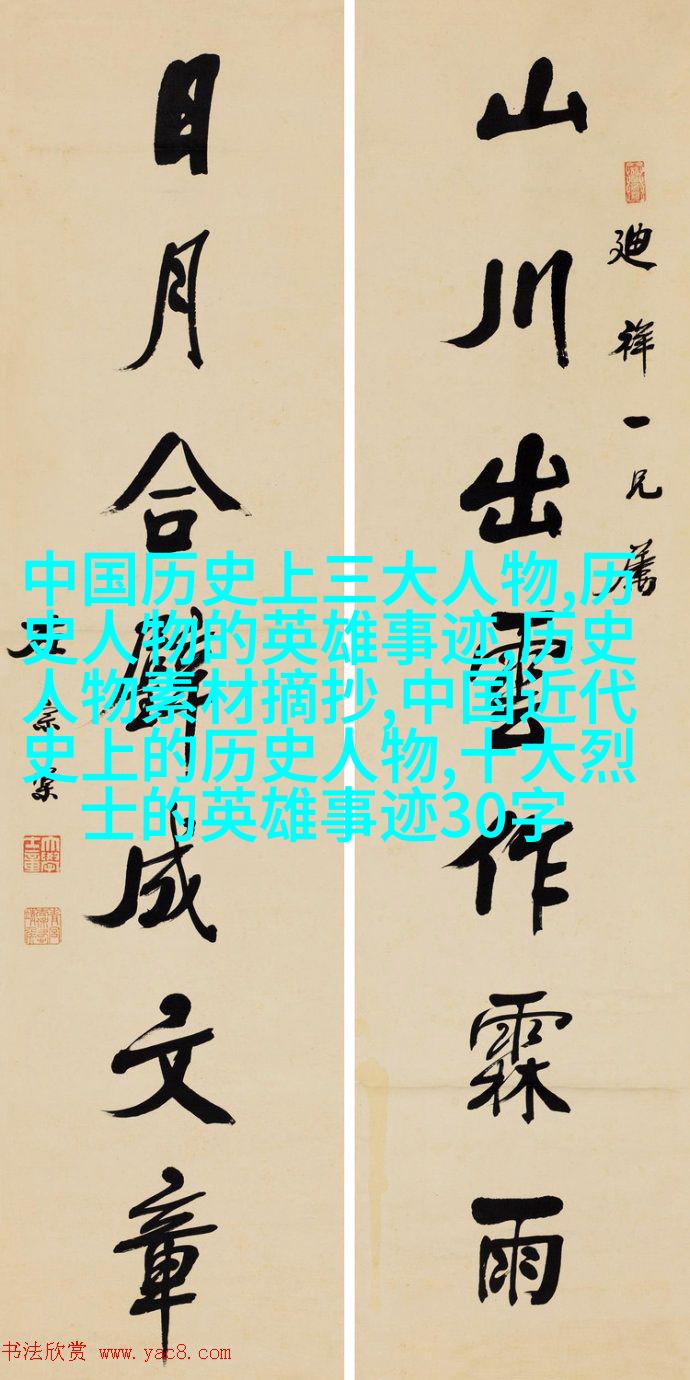 山川出雲作霖雨
廸祥一兄屬
日月合璧成文章
左宗棠
中国历史上三大人物,历
史人物的英雄事迹,历史
人物素材摘抄,中国近代
史上的历史人物,十大烈
士的英雄事迹30字
书法欣赏 www.yac8.com